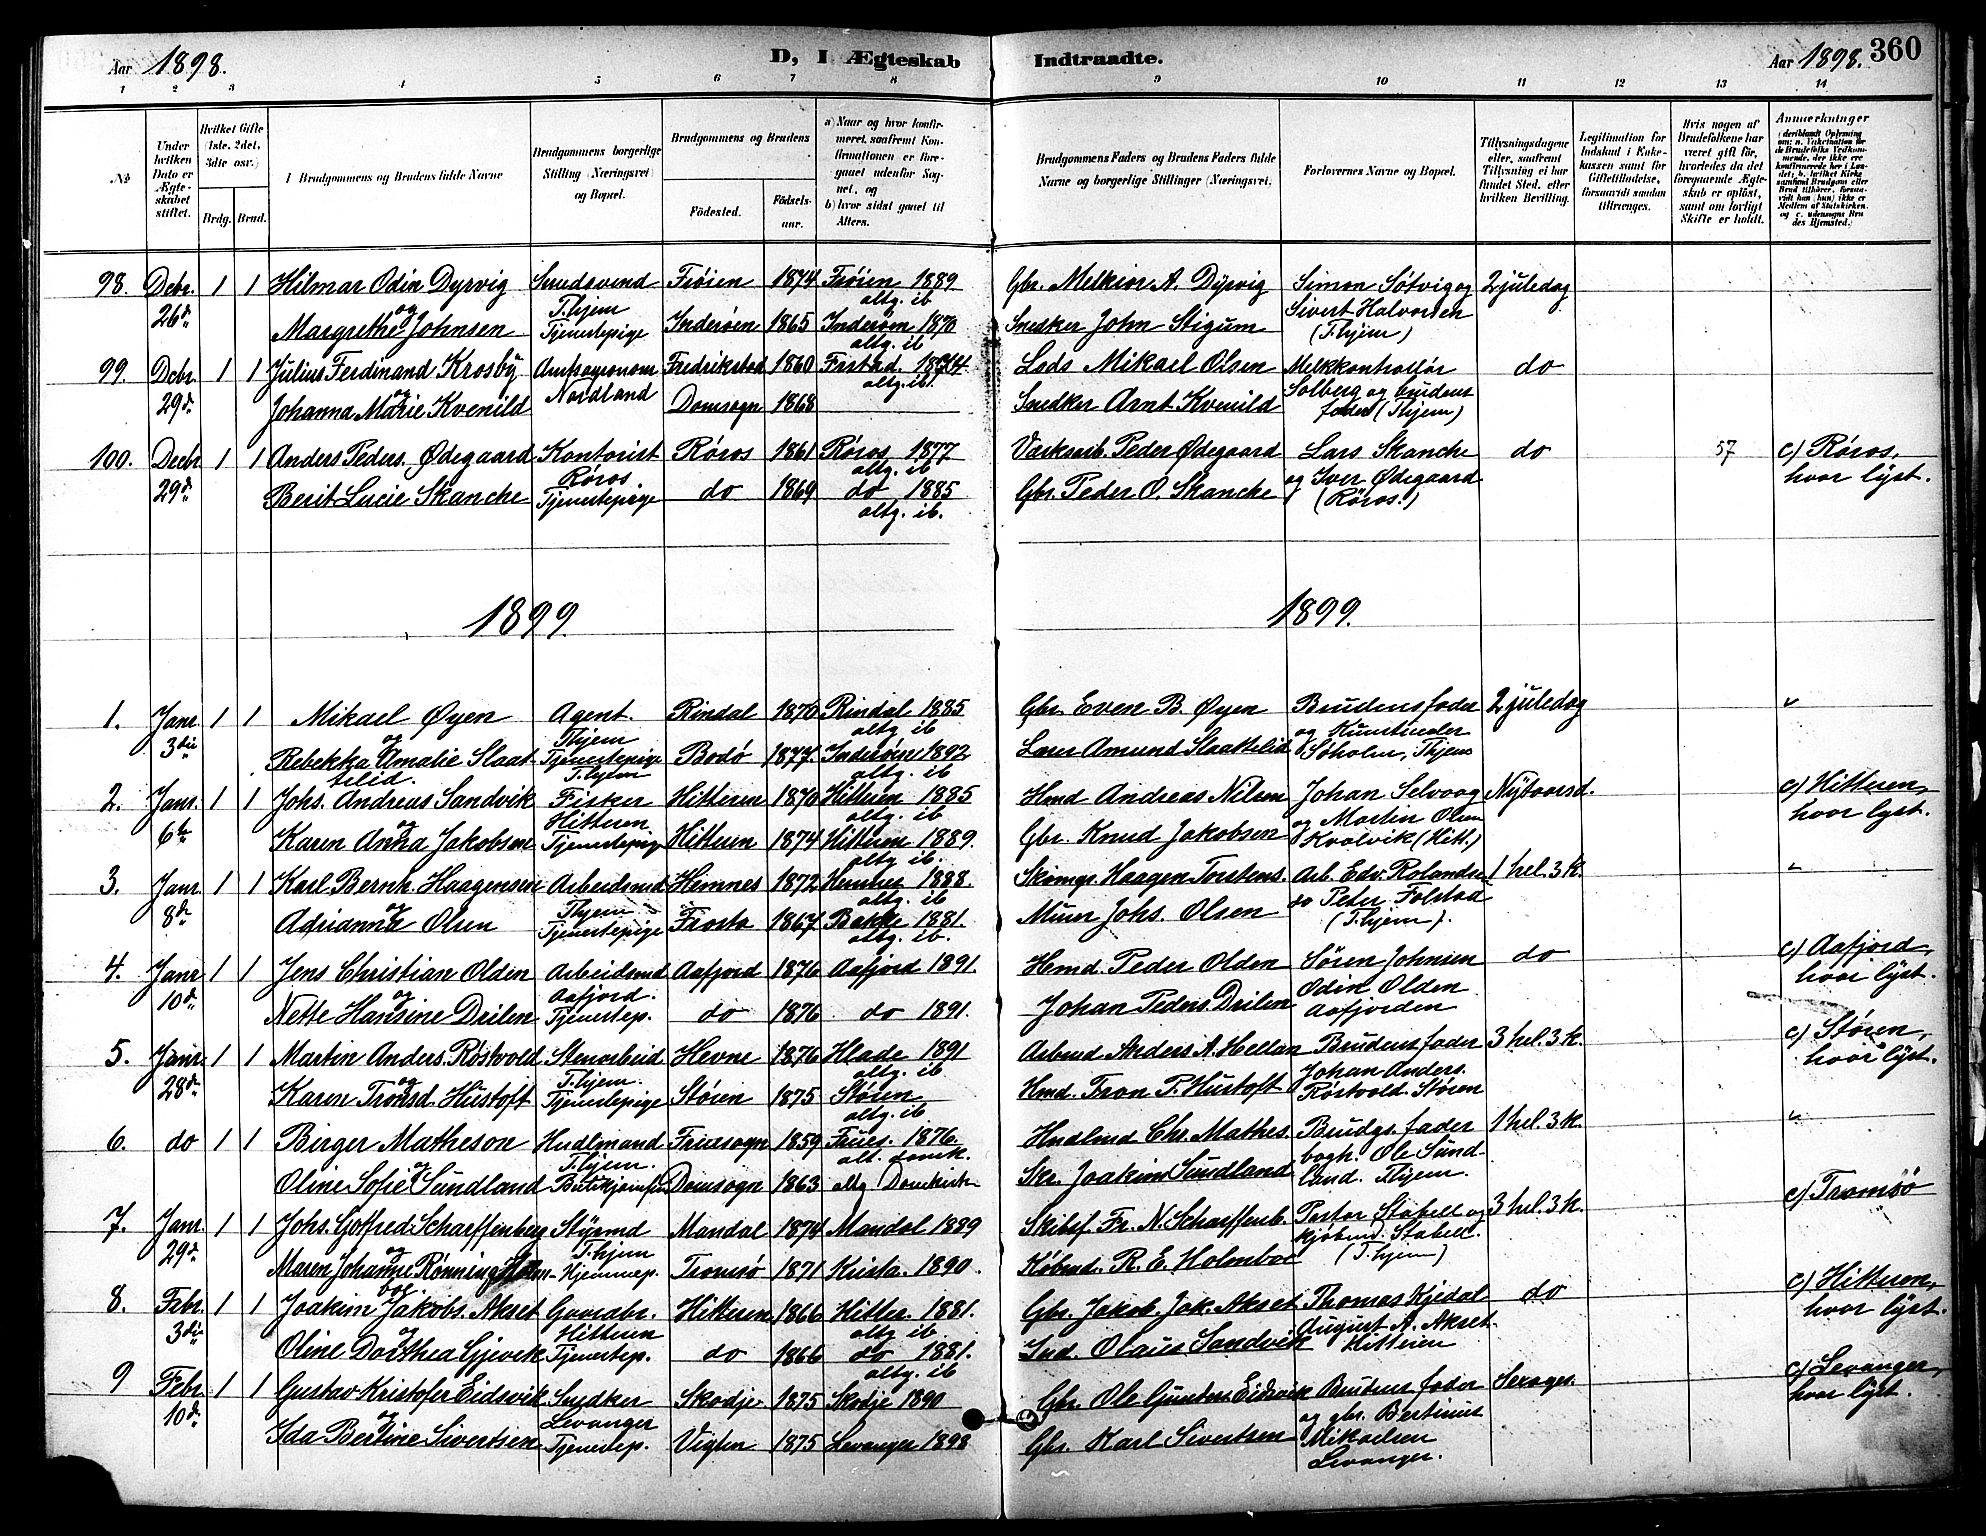 Aar 1898. D, I Ægteskab Indtraadte. Aar 1898. 360
1 2 3 4 5 6 7 8 9 10 11 12 13 14
No
Under hvilken Dato er Ægteskabet stiftet.
Hvilket Gifte (1ste, 2det, 3die osv.)
Brdg. Brud.
I Brudgommens og Brudens fulde Navne
Brudgommens borgerlige Stilling (Næringsvei) og Bopæl.
Brudgommens og Brudens
Fødested. Fødselsaar.
a) Naar og hvor konfirmeret, saafremt Konfirmationen er foregaaet udenfor Sognet, og
b) hvor sidst gaaet til Alters.
Brudgommens Faders og Brudens Faders fulde Navne og borgerlige Stillinger (Næringsvei.
Forlovernes Navne og Bopæl.
Tillysningsdagene eller, saafremt Tillysning ei har fundet Sted, efter hvilken Bevilling.
Legitimation for Indskud i Enkekassen samt for Giftetilladelse, forsaavidt saadan tiltrænges.
Hvis nogen af Brudefolkene har været gift før, hvorledes da det foregaaende Ægteskab er opløst, samt om lovligt Skifte er holdt.
Anmærkninger
98. Decbr. 1 1 Hilmar Odin Dyrvig Smedsvend Frøien 1874 Frøien 1889 Gbr. Melkior A. Dyrvig Simon Søtvig og 2 juledag
26d og T.hjem altg. ib Sivert Halvorsen
Margrethe Johnsen Tjenestepige Inderøen 1865 Inderøen 1870 Snedker John Stigum (T.hjem)
altg. ib
99. Decbr. 1 1 Julius Ferdinand Krosby Amtsagronom Fredrikstad 1860 Lods Mikael Olsen Melkkontrollør do
29d og Nordland altg. ib. Solberg og brudens
Johanna Marie Kvenild Domsogn 1868 Snedker Arnt Kvenild fader (T.hjem)
100. Decbr 1 1 Anders Peders. Ødegaard Kontorist Røros 1861 Røros 1877 Verksarb. Peder Ødegaard Lars Skancke do 57 c) Røros,
29d Røros altg. ib og Iver Ødegaard hvor lyst.
Berit Lucie Skancke Tjenestepige do 1869 do 1885 Gbr. Peder O. Skancke (Røros.)
altg. ib.
1899. 1899.
1. Janr. 1 1 Mikael Øyen Agent. Rindal 1870 Rindal 1885 Gbr. Even B. Øyen Brudens fader 2 juledag "
3die og T.hjem altg. ib og Kunstinder
Rebekka Amalie Slaat- Tjenestepige Bodø 1877. Inderøen 1892 Amund Slaattelid Søholm, T.hjem
telid. T.hjem altg. ib
2. Janr. 1 1 Johs. Andreas Sandvik Fisker Hitteren 1870 Hitteren 1885 Hmd Andreas Nilsen Johan Selvaag Nytaarsd. c) Hitteren,
6te og Hitteren altg. ib og Martin Olsen hvor lyst.
Karen Anna Jakobsen Tjenestepig Hitteren 1874 Hitteren 1889. Gbr. Knud Jakobsen Kvalvik (Hitt.)
altg ib.
3. Janr. 1 1 Karl Bernh. Haagensen Arbeidsmd Hemnes 1872 Hemnes 1888. Haagen Torstens. Arb. Edv. Rolandsen 1 hel. 3 k. "
8de og T.hjem altg. ib do Peter Folstad
Adrianna Olsen Tjenestepige Frosta 1867 Bakke 1881. Murer Johs. Olsen (T.hjem).
altg. ib.
4. Janr 1 1 Jens Christian Olden Arbeidsmd Aafjord 1876 Aafjord 1891. Hemd. Peder Olden Søren Johnsen do c) Aafjord,
10d og Aafjord. Odin Olden hvor lyst.
Nette Hansine Drilen Tjenestep. do 1876 do 1891. Johan Peders. Drilen Aafjorden
5. Janr. 1 1 Martin Anders. Røstvold Stenarbeid Hevne 1876 Hlade 1891 Arbmd Anders A. Hellan Brudens fader 3 hel. 3 k. c) Støren,
28d og T.hjem. altg. ib Johan Anders. hvor lyst.
Karen Tronsd. Hustoft Tjenestepige Støren 1875 Støren Hmd. Tron P. Hustoft Røstvold. Støren
altg. ib
6. do 1 1 Birger Matheson Hndlmand Fruesogn 1859 Frues. 1876. Hndlmd Chr. Mathes. Brudgs. fader 1 hel. 3 k. "
og T.hjem. alt. domk. bogh. Ole Sund-
Oline Sofie Sundland Domsogn 1863 altg Domkirk Skr. Joakim Sundland land. T.hjem.
7. Janr. 1 1 Johs. Gotfred Scharffenberg Styrmd Mandal 1874 Mandal 1889 Skibsf. Fr. N. Scharffenb. Pastor Stabell og 3 hel. 3 k. c) Tromsø
29d og T.hjem kjøbmd. Stabell.
Maren Johanne Rønning Holm- Hjemmep. Tromsø 1871 Krista. 1890. Købmd. R. E. Holmboe (T.hjem)
boe.
8. Febr. 1 1 Joakim Jakobs. Akset Gaarabr. Hitteren 1866 Hitter. 1881. Gbr. Jakob Jak. Akset Thomas Kjedal do c) Hitteren,
3die og Hitteren altg ib. August A. Akset. hvor lyst.
Oline Dorthea Gjevik Tjenestep. do 1866 do 1881. Olaus Sandvik Hitteren
altg. ib
9 Febr. 1 1 Gustav Kristofer Eidsvik Snedker Skodje 1875 Skodje 1890 Gbr. Ole Gunders. Eidsvik Brudens fader Sexages. c) Levanger,
10d og Levanger og gbr. Bertinus hvor lyst.
Ida Bertine Sivertsen Tjenestep. Vigten 1875 Levanger 1898 Gbr. Karl Sivertsen Mikaelsen
Levanger.